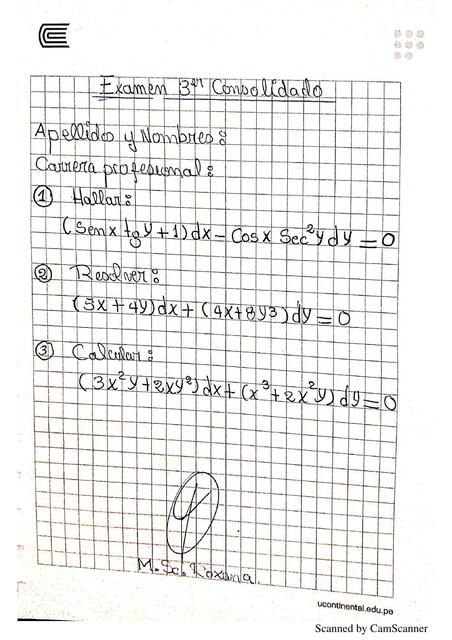 Examen 3er Consolidado
Apellidos y Nombres:
Carrera profesional:
① Hallar:
(Senx tgy+1)dx - Cosx Sec²y dy = 0
② Resolver:
(5x + 4y)dx + (4x+8y3)dy = 0
③ Calcular:
(3x²y+2xy²)dx+(x³+2x²y)dy=0
M.Sc. Roxana
ucontinental.edu.pe
Scanned by CamScanner